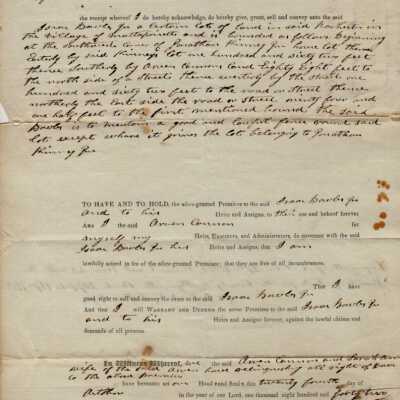 the receipt whereof I do hereby acknowledge, do hereby give, grant, sell and convey unto the said
Isaac Bowles Jr a certain lot of land in said Rochester in
the village of Mattapoisett and is bounded as follows Beginning
at the Southwest corner of Jonathan Kinney Jr home lot thence
Easterly by said Kinneys lot one hundred and sixty two feet
thence Southerly by Owen Cannons land Eighty Eight feet to
the north side of a Street thence westerly by the street one
hundred and sixty two feet to the road or Street thence
northerly the East side the road or Street ninety four and
one half feet to the first mentioned bound. The said
Bowles is to maintain a good and lawful fence round said
lot except where it joines the lot belonging to Jonathan
Kinney Jr
TO HAVE AND TO HOLD, the afore-granted Premises to the said Isaac Bowles Jr
and to his Heirs and Assigns, to their use and behoof forever.
And I the said Owen Cannon for
myself my Heirs, Executors, and Administrators, do covenant with the said
Isaac Bowles Jr his Heirs and Assigns, that I am
lawfully seized in fee of the afore-granted Premises; that they are free of all incumbrances.
That I have
good right to sell and convey the same to the said Isaac Bowles Jr
And that I will WARRANT AND DEFEND the same Premises to the said Isaac Bowles Jr
and to his Heirs and Assigns forever, against the lawful claims and
demands of all persons.
In Witness Whereof, we the Owen Cannon and
wife of the said Owen have relinquishing all right of Dower
to the above Premises
have hereunto set our Hand and Seals this twenty fourth day of
October in the year of our Lord, one thousand eight hundred and forty two